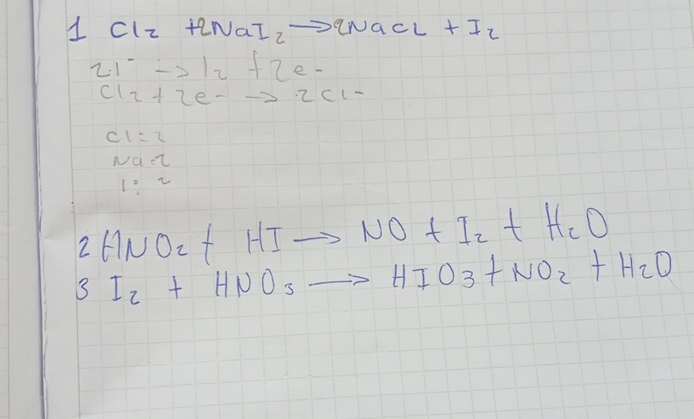 1 Cl₂ + 2NaI₂ → 2NaCl + I₂
2I⁻ → I₂ + 2e-
Cl₂ + 2e- → 2Cl-
Cl = 2
Na = 2
I: 2
2 HNO₂ + HI → NO + I₂ + H₂O
3 I₂ + HNO₃ → HIO₃ + NO₂ + H₂O